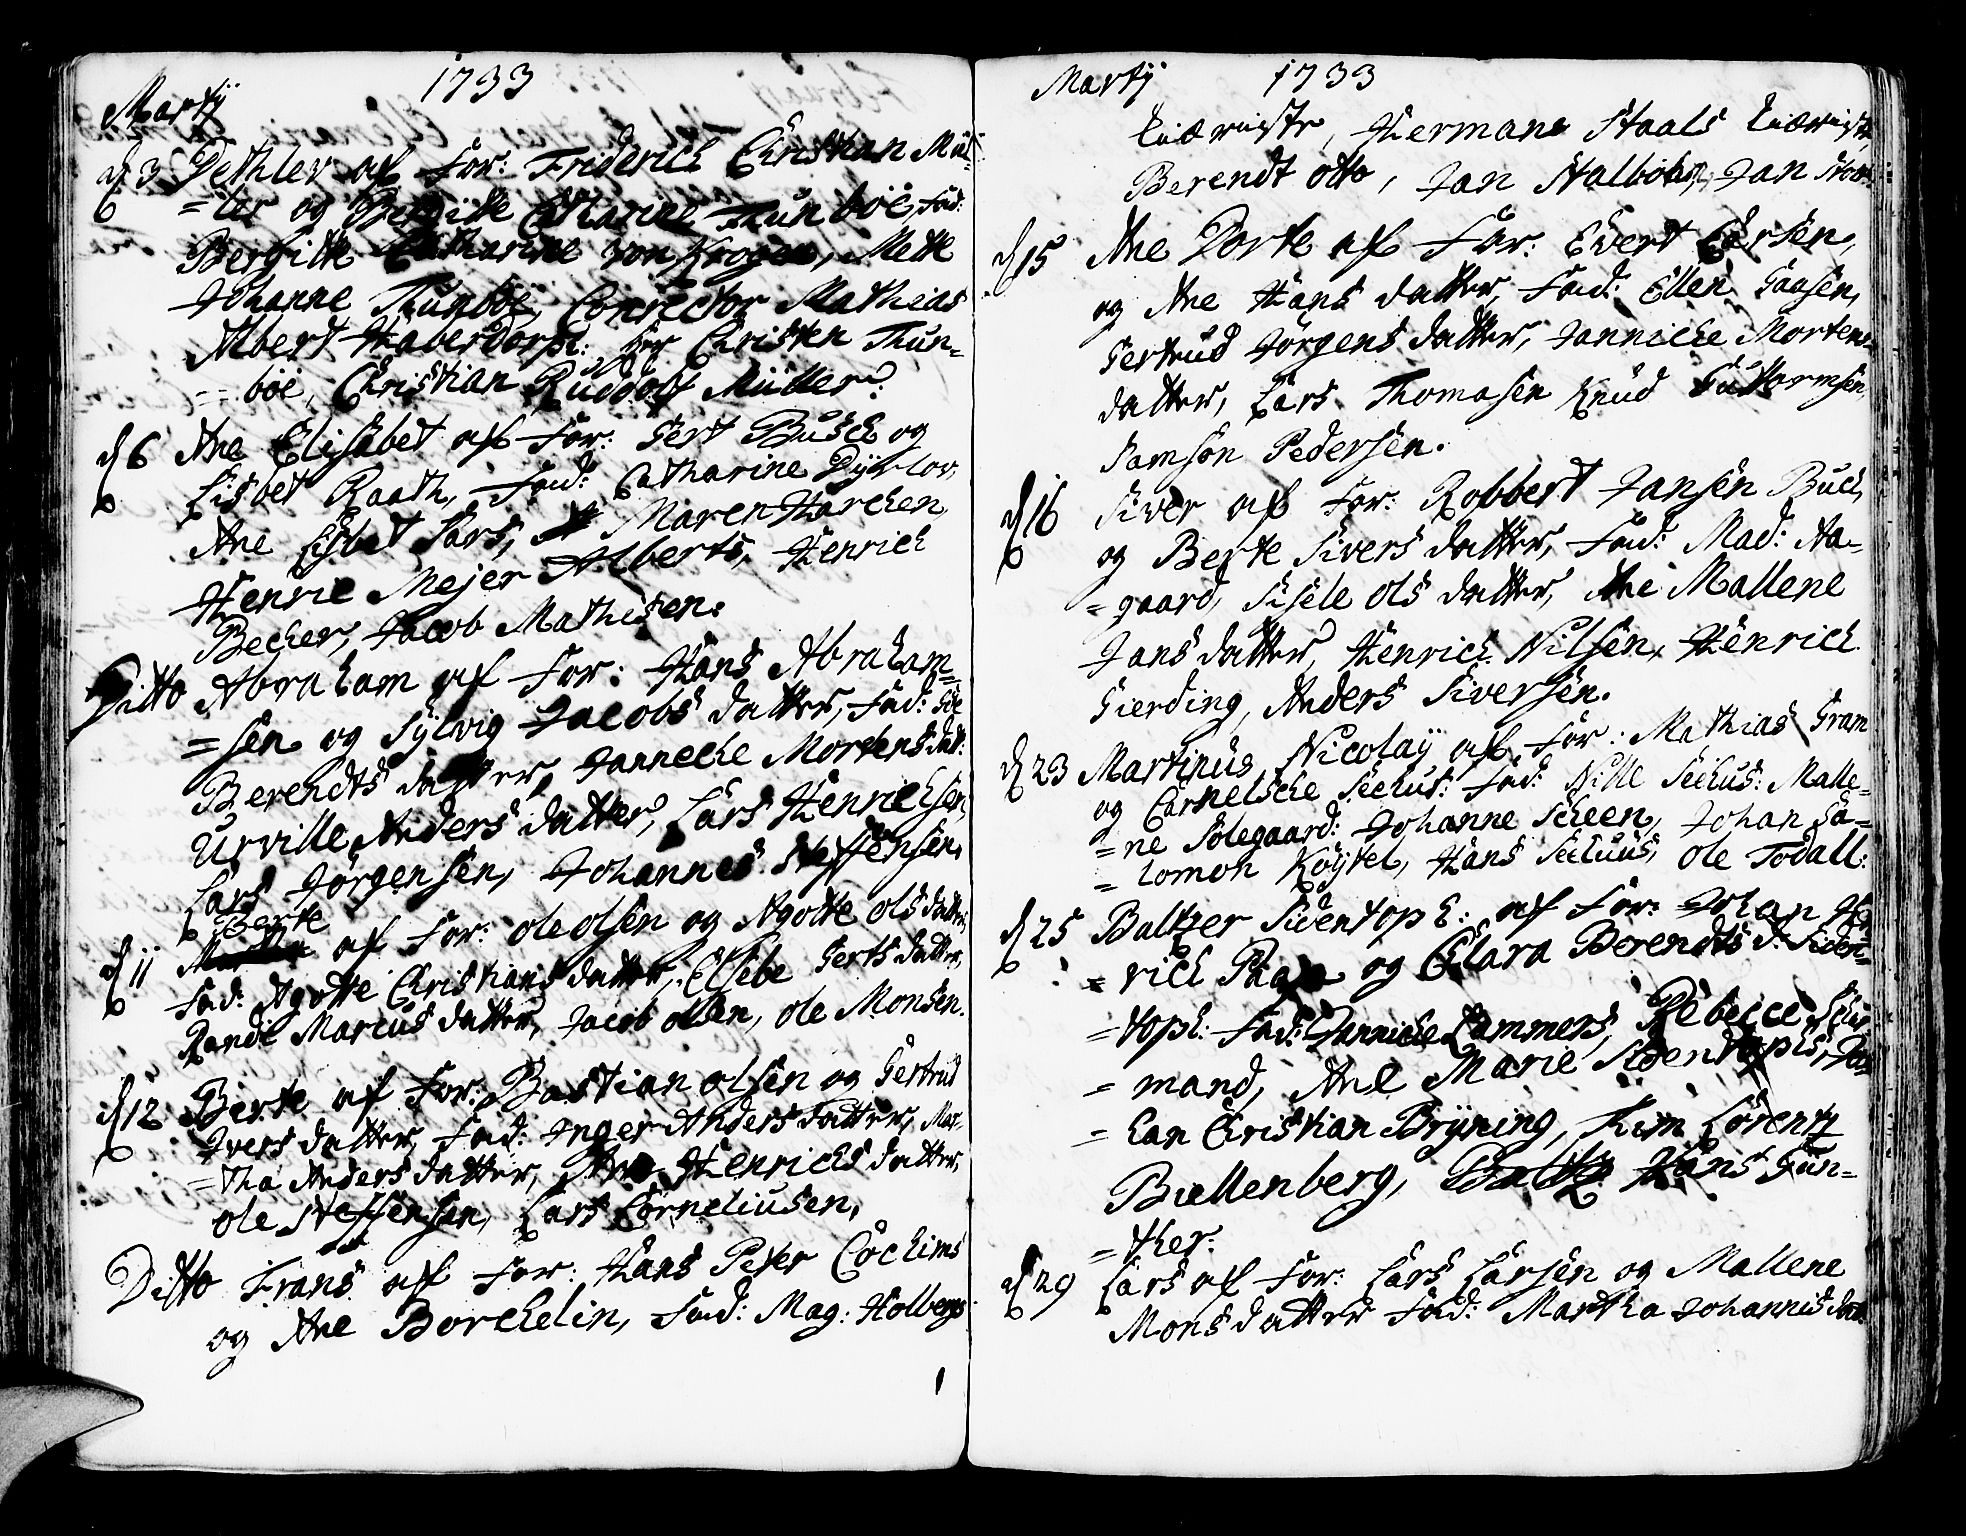 1733
Martij
d 3 Dethlev af For: Friderich Christian Mül-
=ler og Bergitte Catharine Thunboe, Fad:
Bergitte Catharine von Krogen, Mette
Johanne Thunboe, Conrector Mathias
Albert Haberdorph: Her Christen Thun-
== boe, Christian Rudolf Müller.
d 6 Ane Elisabet af For: Gert Busch og
Lisbet Raath, Fad: Catharine Dyrlov,
Ane Lisbet Fars, Maren Harchen,
Henric Mejer Alberts, Henrich
Becher, Jacob Mathisen.
Ditto Abraham af For: Hans Abraham=
=sen og Sylvig Jacobs datter, Fad:
Berendts datter, Jannecke Mortens datt:
Urville Anders datter, Lars Henrichsen,
Lars Jørgensen, Johannes Steffensen.
Berte
d 11 af For: ole olsen og Agotte ols datter,
Fad: Agotte Christians datter, Elsebe Gerts datter,
Rande Marcus datter, Jacob olsen, ole Monsen.
d 12 Birte af For: Bastian olsen og Gertrud
Ivers datter, Fad: Inger Anders datter, Mar-
=tha Anders datter, Ane Henrichs datter,
ole Steffensen, Lars Corneliusen,
Ditto Frans af For: Hans Peter Cochims
og Ane Borchelin, Fad: Mag: Holbergs
Martij 1733
Hermane Staals
Berendt otto, Jan Stalbohm, Jan
d 15 Ane Dorte af For: Evert Larsen,
og Ane Hans datter, Fad: Ellen Gaasen,
Gertrud Jörgens datter, Jannicke Mortens-
datter, Lars Thomasen Knud Guttormsen,
Samson Pedersen.
d 16 Siver af For: Robbert Jansen Buch,
og Berte Sivers datter, Fad: Mad: Aa=
=gaard, Sisele ols datter, Ane Mallene
Jans datter, Henrich Nilsen, Henrich
Gierding, Anders Siversen.
d 23 Martinus Nicolaij af For: Mathias Gram
og Cornelsche Seehus: Fad: Nille Seehus: Malle=
=ne Solegaard: Johanne Scheen, Johan Sa=
=lomon Köijtel, Hans Seehuus, ole Todall:
d 25 Baltzer Sidentoph: af For: Johan Hen
=rich Paape og Clara Berendts d: Siden=
=toph: Fad: Jannicke Lammers, Rebecce
= mand, Ane Marie Sidentophs, Jo-
= han Christian Bryning, Kim Lorentz
Bullenberg, Hans Gün=
=ther.
d 29 Lars af For: Lars Larsen og Mallene
Mons datter Fad: Martha Johannis datt: